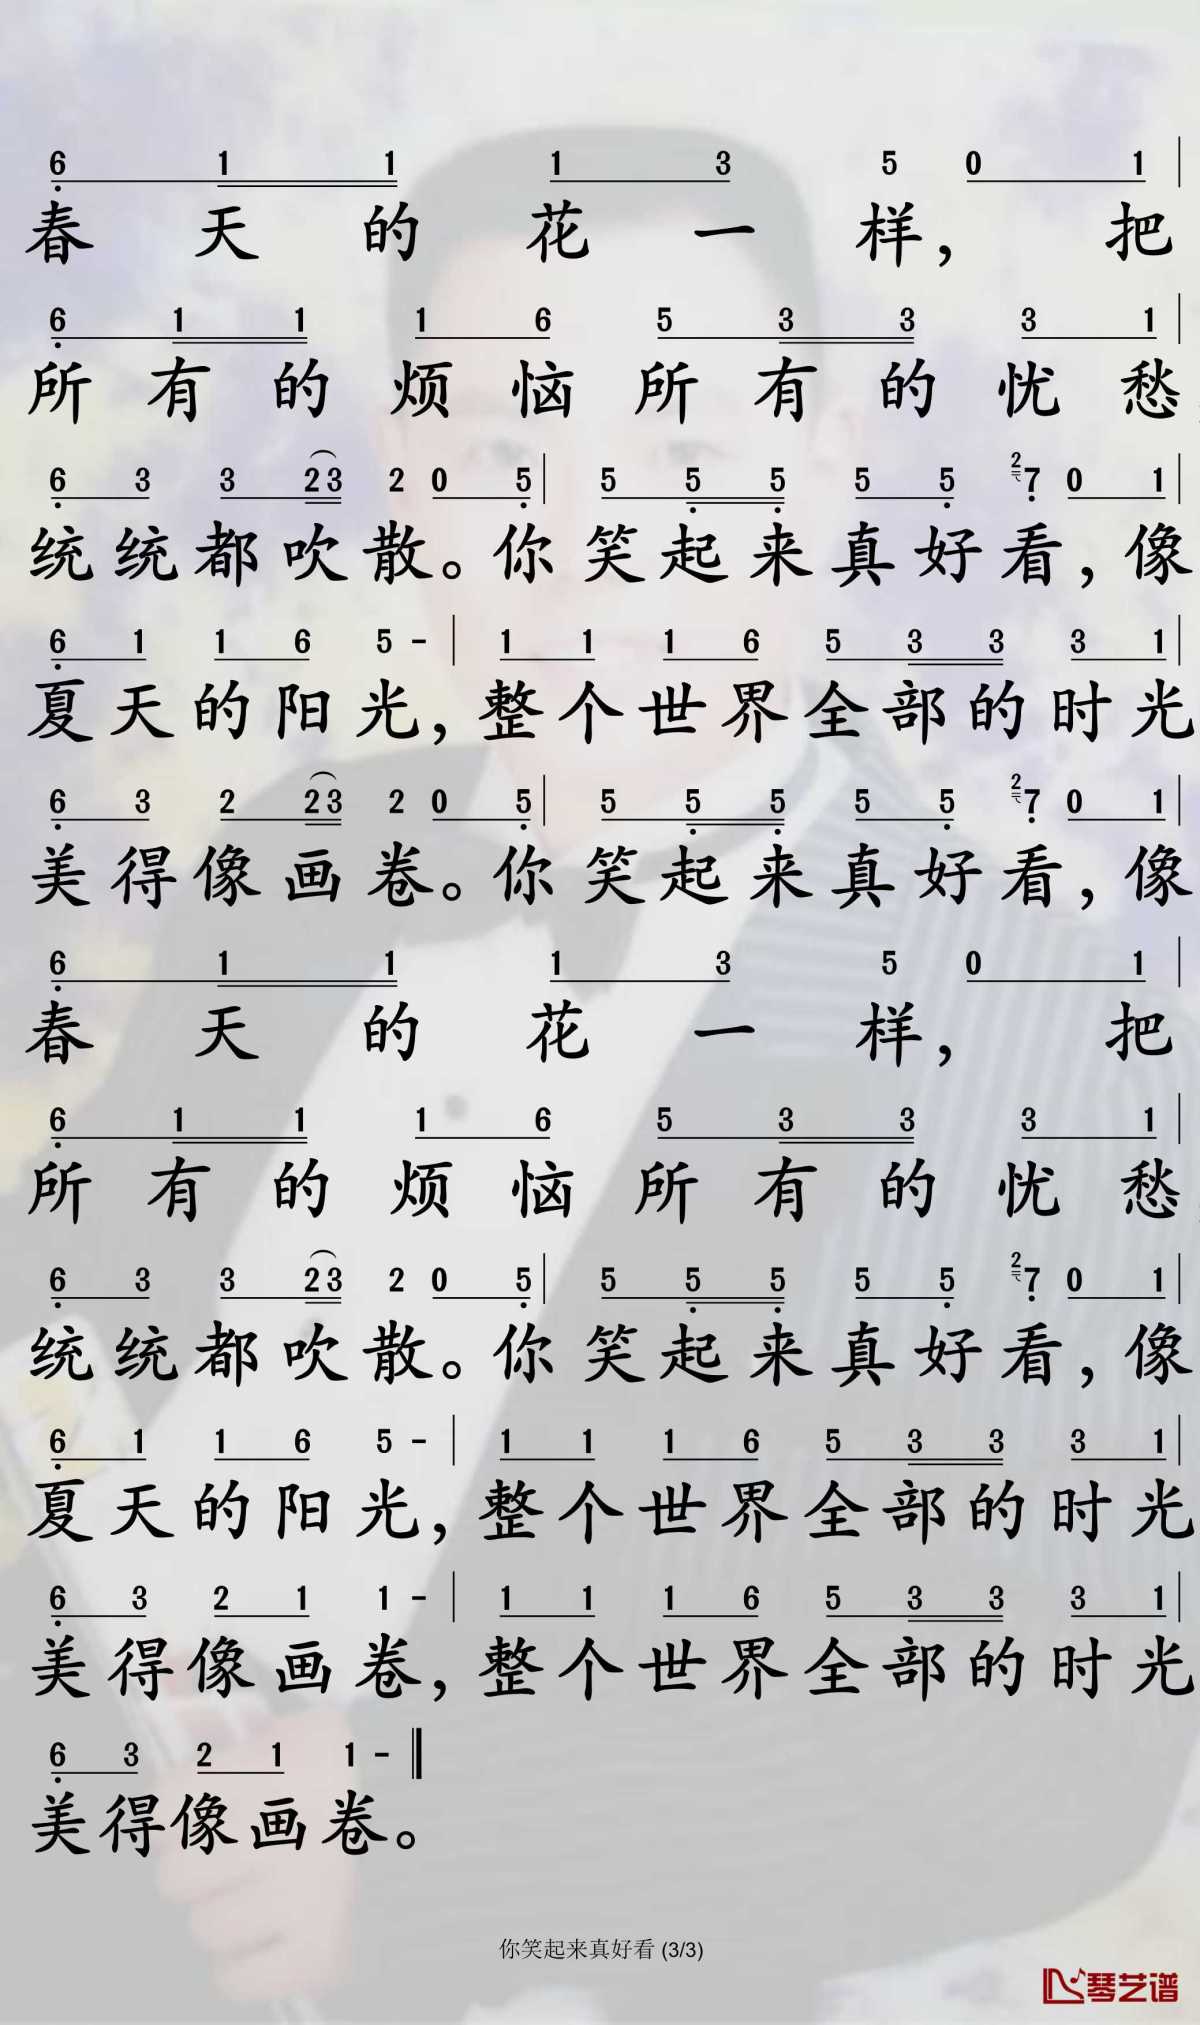 6 1 1 1 3 5 0 1
春天的花一样，把
6 1 1 1 6 5 3 3 3 1
所有的烦恼所有的忧愁
6 3 3 2 3 2 0 5 5 5 5 5 5 2 7 0 1
统统都吹散。你笑起来真好看，像
6 1 1 6 5 - 1 1 1 6 5 3 3 3 1
夏天的阳光，整个世界全部的时光
6 3 2 2 3 2 0 5 5 5 5 5 5 2 7 0 1
美得像画卷。你笑起来真好看，像
6 1 1 1 3 5 0 1
春天的花一样，把
6 1 1 1 6 5 3 3 3 1
所有的烦恼所有的忧愁
6 3 3 2 3 2 0 5 5 5 5 5 5 2 7 0 1
统统都吹散。你笑起来真好看，像
6 1 1 6 5 - 1 1 1 6 5 3 3 3 1
夏天的阳光，整个世界全部的时光
6 3 2 1 1 - 1 1 1 6 5 3 3 3 1
美得像画卷，整个世界全部的时光
6 3 2 1 1 -
美得像画卷。
你笑起来真好看 (3/3)
琴艺谱